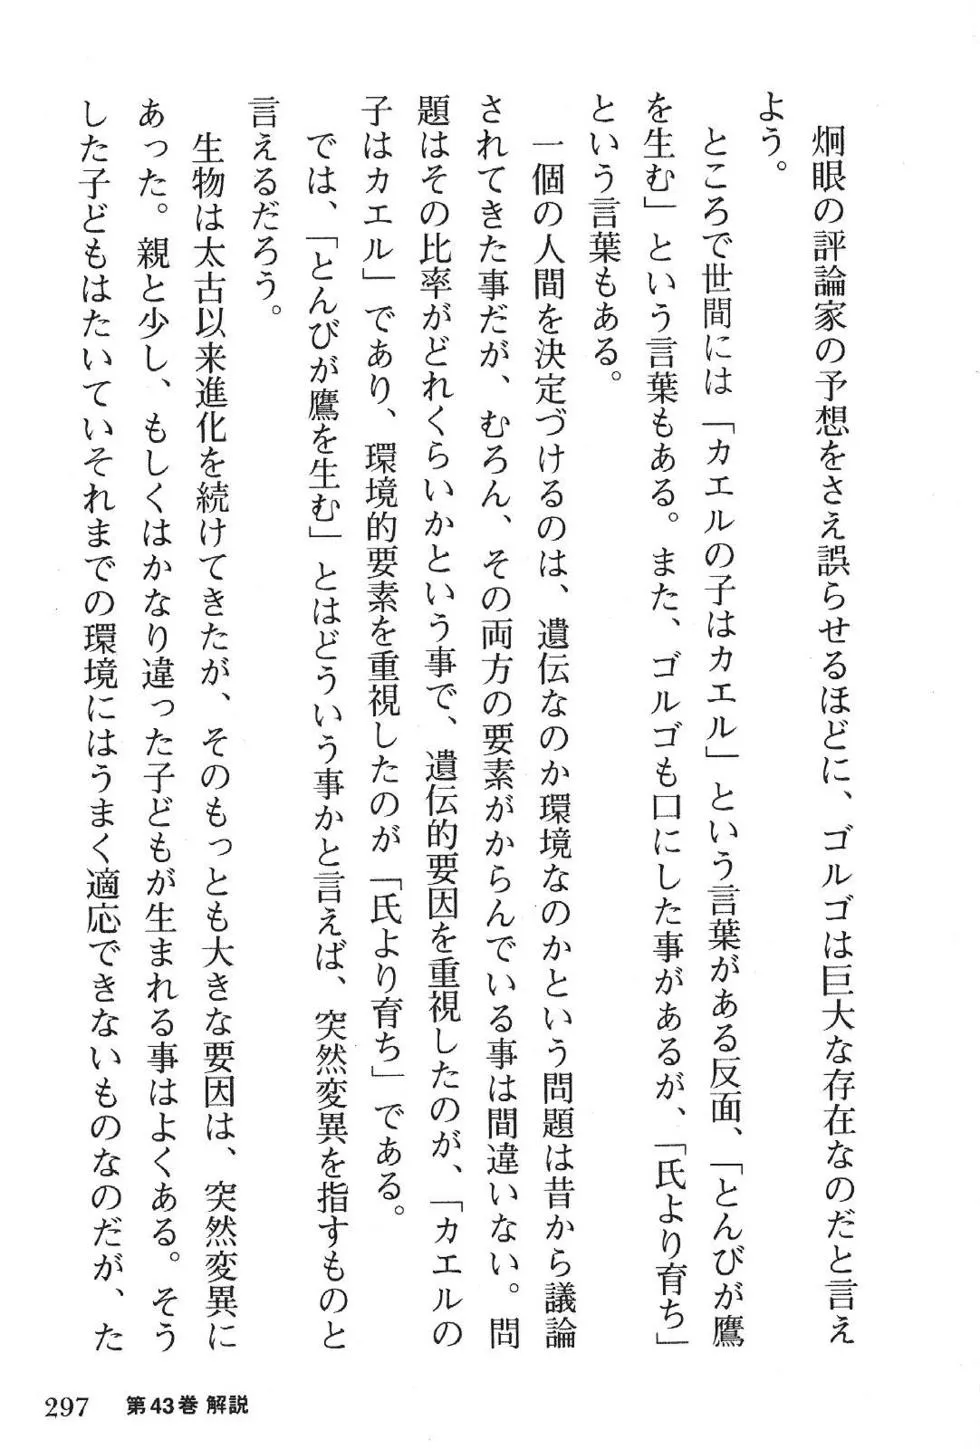 炯眼の評論家の予想をさえ誤らせるほどに、ゴルゴは巨大な存在なのだと言え
よう。
ところで世間には「カエルの子はカエル」という言葉がある反面、「とんびが鷹
を生む」という言葉もある。また、ゴルゴも口にした事があるが、「氏より育ち」
という言葉もある。
一個の人間を決定づけるのは、遺伝なのか環境なのかという問題は昔から議論
されてきた事だが、むろん、その両方の要素がからんでいる事は間違いない。問
題はその比率がどれくらいかという事で、遺伝的要因を重視したのが、「カエルの
子はカエル」であり、環境的要素を重視したのが「氏より育ち」である。
では、「とんびが鷹を生む」とはどういう事かと言えば、突然変異を指すものと
言えるだろう。
生物は太古以来進化を続けてきたが、そのもっとも大きな要因は、突然変異に
あった。親と少し、もしくはかなり違った子どもが生まれる事はよくある。そう
した子どもはたいていそれまでの環境にはうまく適応できないものなのだが、た
297 第43巻 解説